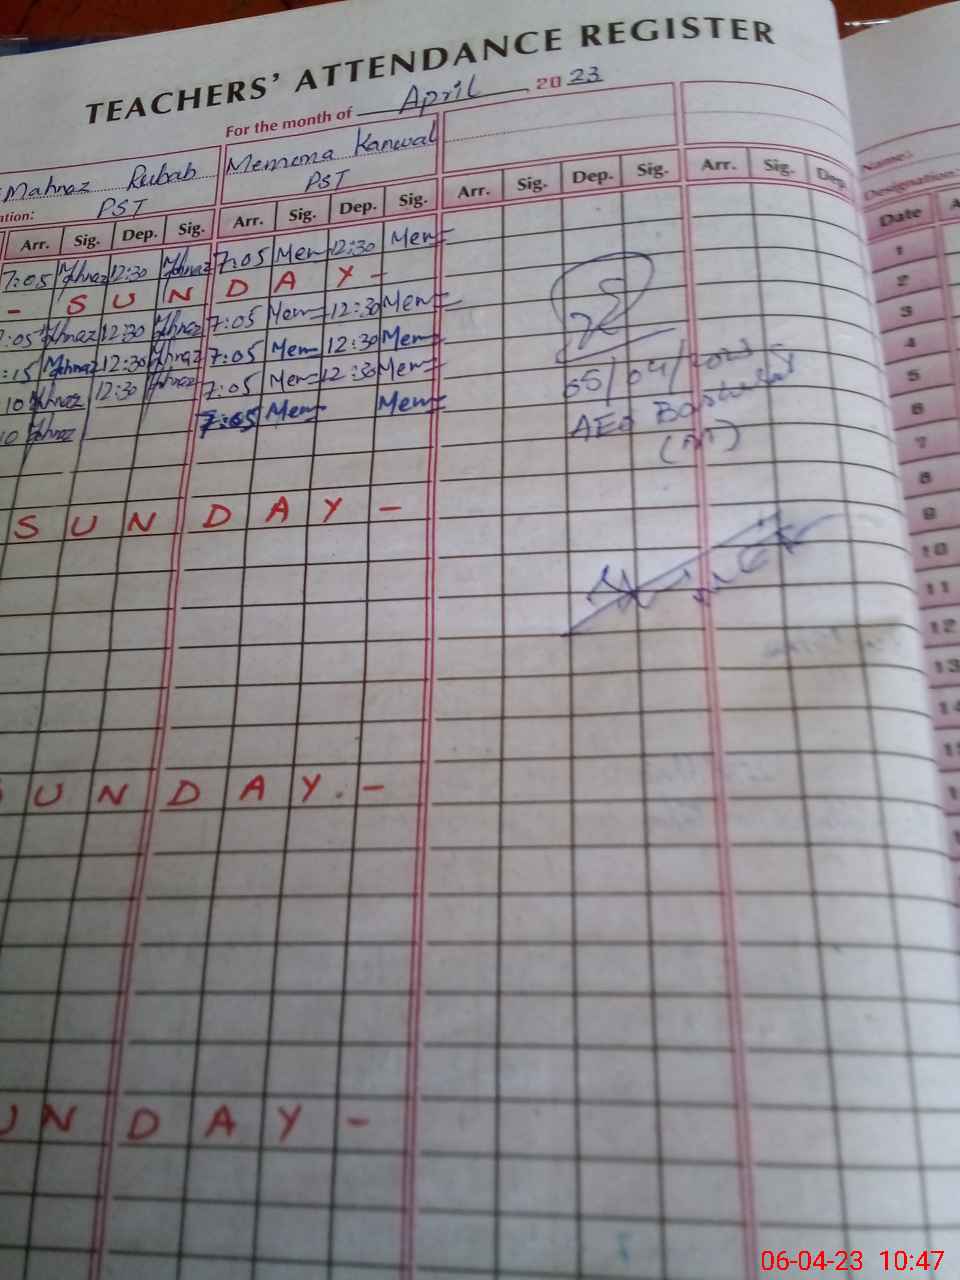 TEACHERS' ATTENDANCE REGISTER
For the month of April, 2023
Mahnaz Rubab Memona Kanwal
PST PST
Arr. Sig. Dep. Sig. Arr. Sig. Dep. Sig. Arr. Sig. Dep. Sig. Arr. Sig. Dep.
7:05 Mahnaz 12:30 Mahnaz 7:05 Mem 12:30 Mem
- S U N D A Y -
:05 Mahnaz 12:30 Mahnaz 7:05 Mem 12:30 Mem
:15 Mahnaz 12:30 Mahnaz 7:05 Mem 12:30 Mem
10 Mahnaz 12:30 Mahnaz 7:05 Mem 12:30 Mem
10 Mahnaz 7:05 Mem Mem
05/04/2023
AEO
S U N D A Y -
U N D A Y . -
U N D A Y -
Name:
Designation:
Date
1
2
3
4
5
6
7
8
9
10
11
12
13
06-04-23 10:47